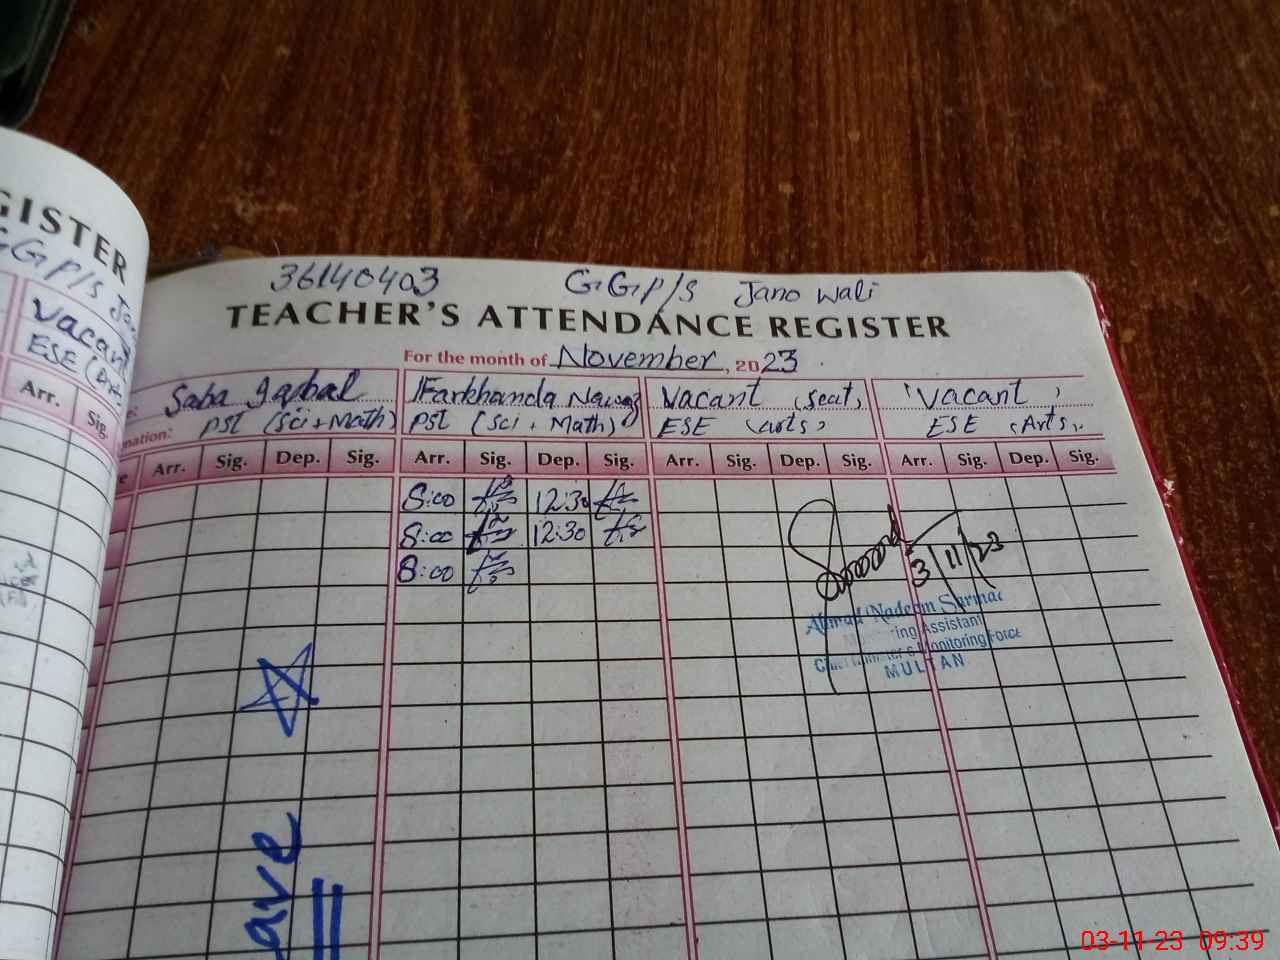 GISTER
GGP/S Jan
Vacant
ESE (Art
Arr. Sig.
36140403 G.G.P/S Jano Wali
TEACHER'S ATTENDANCE REGISTER
For the month of November, 2023
Saba Iqbal Farkhanda Nawaz Vacant (seat) Vacant
nation: PST (Sci + Math) PST (Sci + Math) ESE (arts) ESE (Arts)
Arr. Sig. Dep. Sig. Arr. Sig. Dep. Sig. Arr. Sig. Dep. Sig. Arr. Sig. Dep. Sig.
8:00 12:30
8:00 12:30
8:00
3/11/23
Ahmad Nadeem Sarmad
Monitoring Assistant
Chief Minister's Monitoring Force
MULTAN
ave
03-11-23 09:39